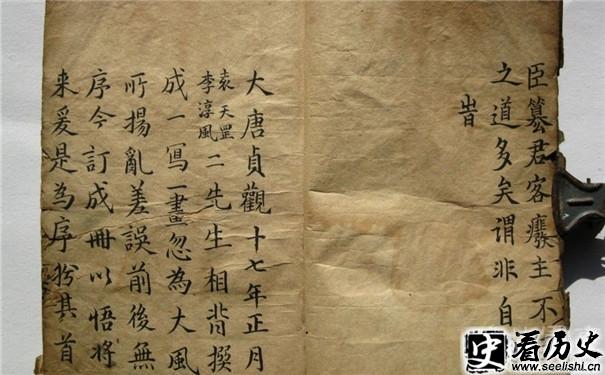 臣篡君客癈主不
之道多矣謂非自
旹
大唐貞觀十七年正月
袁天罡
李淳風
二先生相背撰
成一寫一畫忽為大風
所揚亂差誤前後無
序今訂成冊以悟將
来爰是為序於其首
史 看历史
www.seelishi.cn